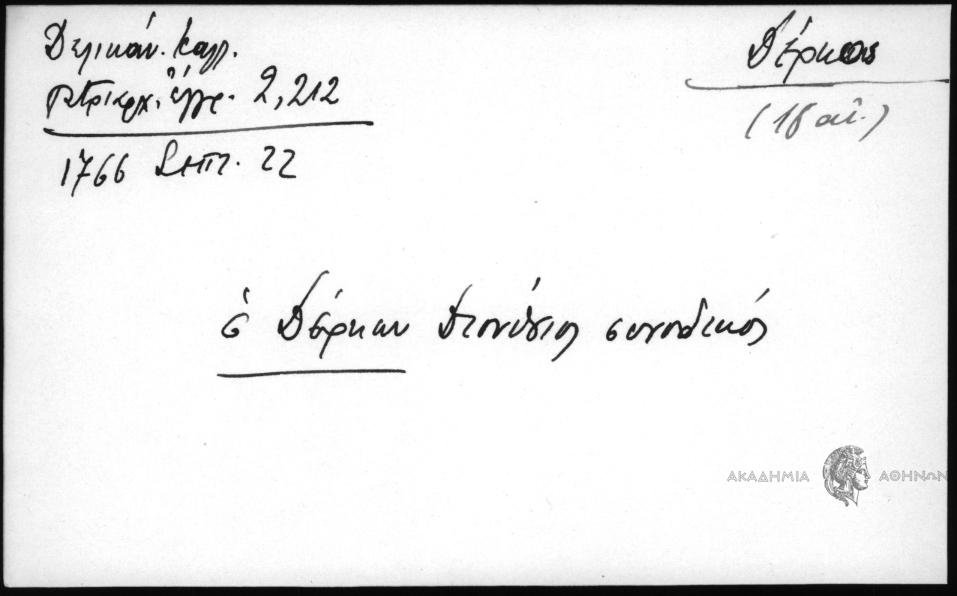 Δελικάν. Καλλ.
Πατριαρχ. ἔγγρ. 2, 212
1766 Σεπτ. 22
Δέρκος
(18 αἰ.)
ὁ Δέρκων Διονύσιος συνοδικός
ΑΚΑΔΗΜΙΑ ΑΘΗΝΩΝ